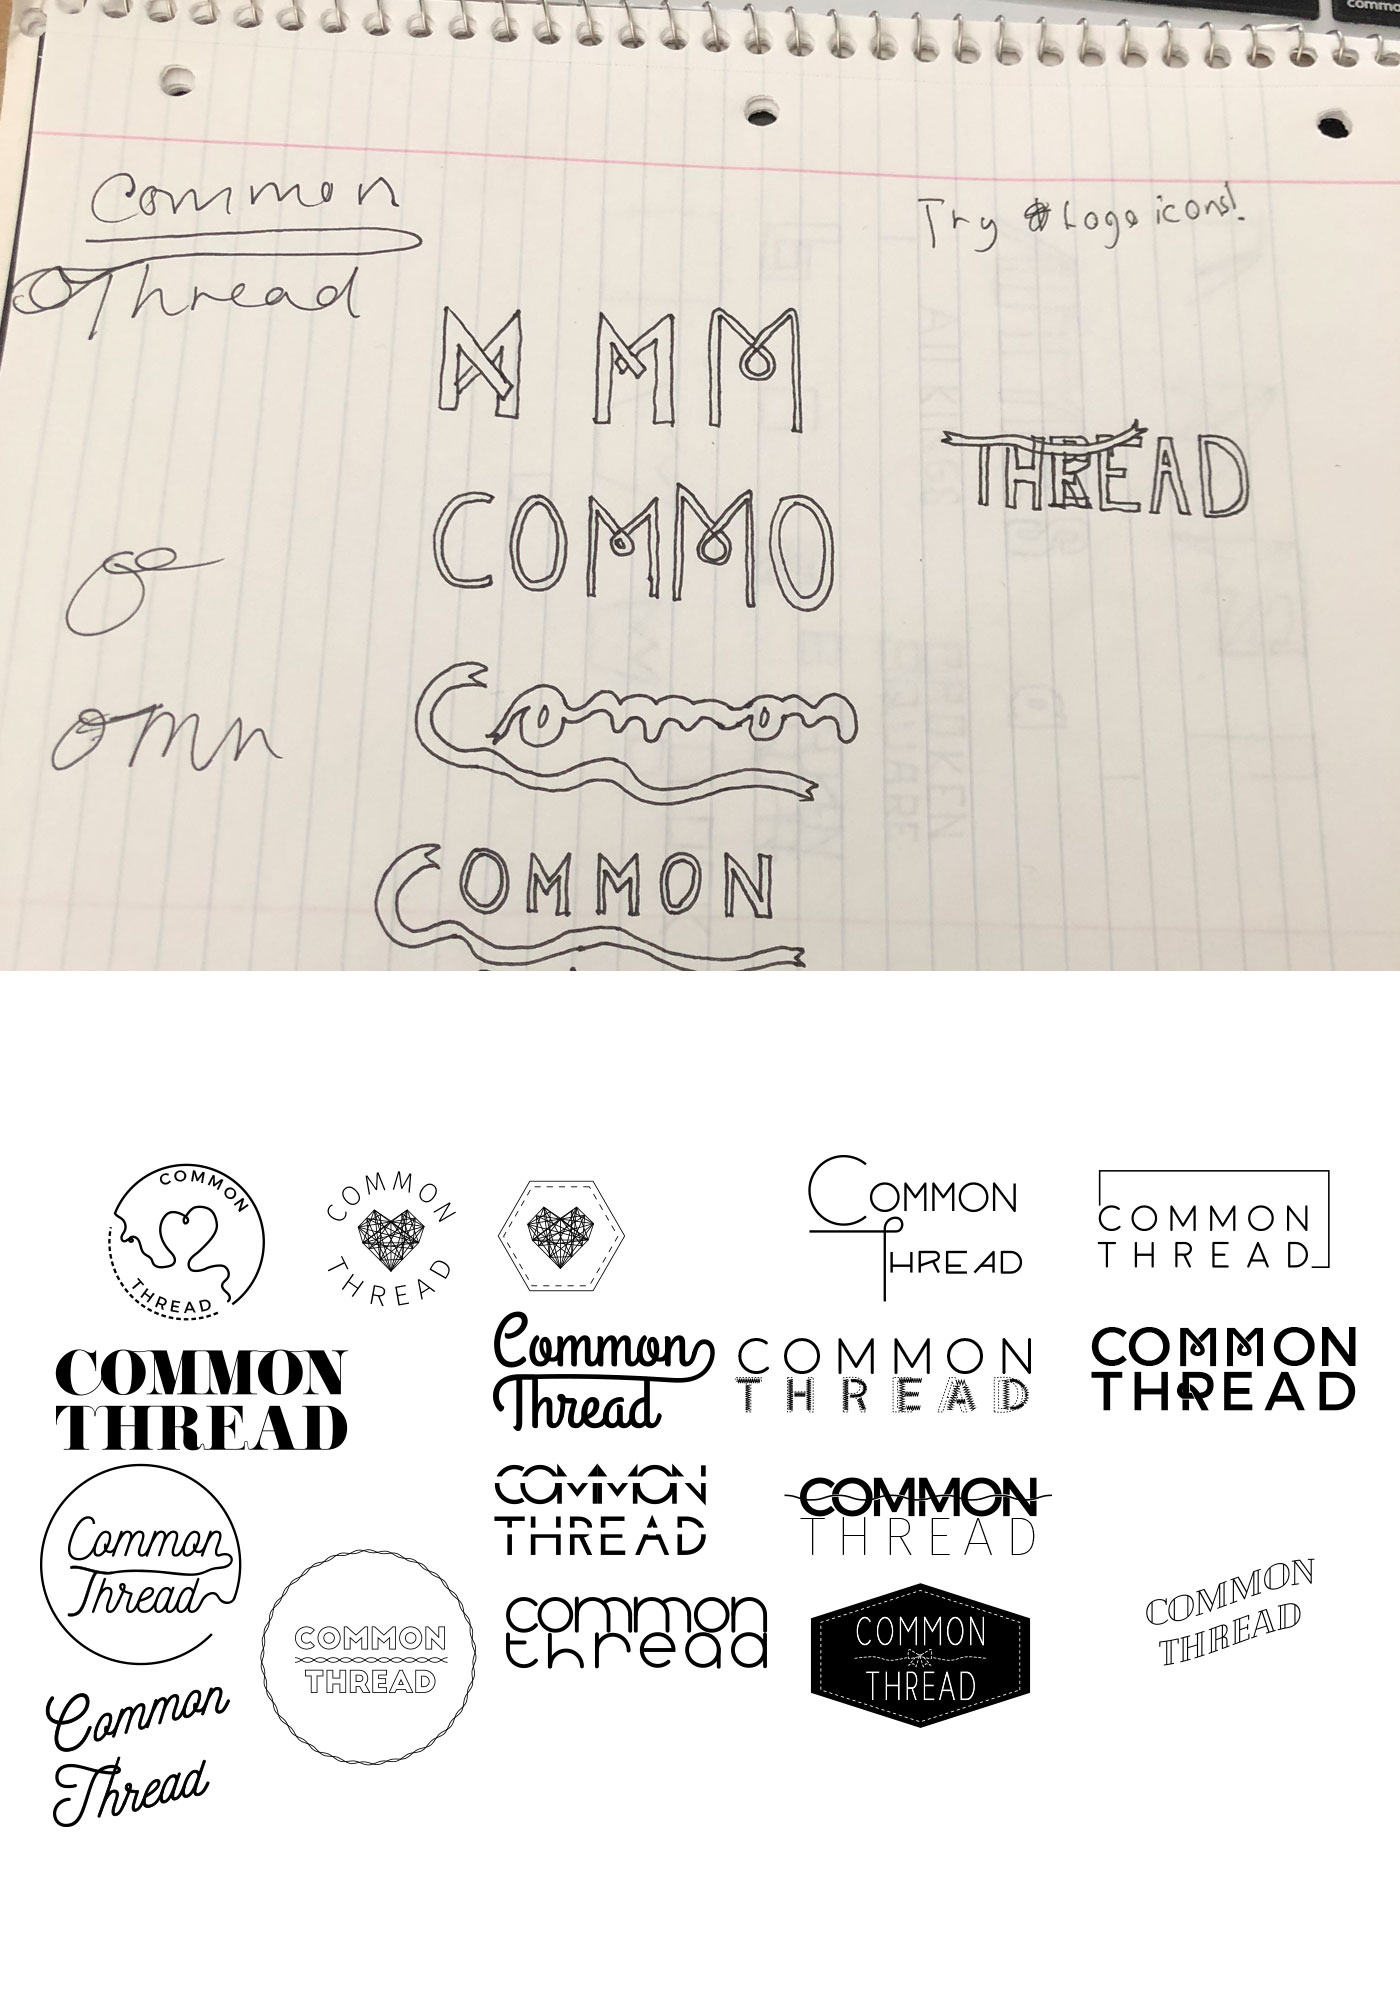 commo
Common
Thread
Try Logo icons!
M M M
THREAD
COMMO
oe
omn
Common
COMMON
COMMON
THREAD
COMMON
THREAD
COMMON
THREAD
COMMON
THREAD
COMMON
THREAD
Common
Thread
COMMON
THREAD
COMMON
THREAD
Common
Thread
COMMON
THREAD
COMMON
THREAD
COMMON
THREAD
common
thread
COMMON
THREAD
COMMON
THREAD
Common
Thread